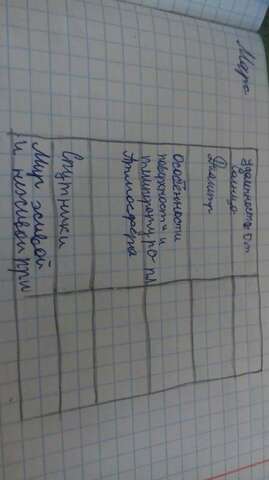 Марс
Удаленность от
Солнца
Диаметр
Особенности
поверхности и
температуры
Атмосфера
Спутники
Мир живой
и неживой при